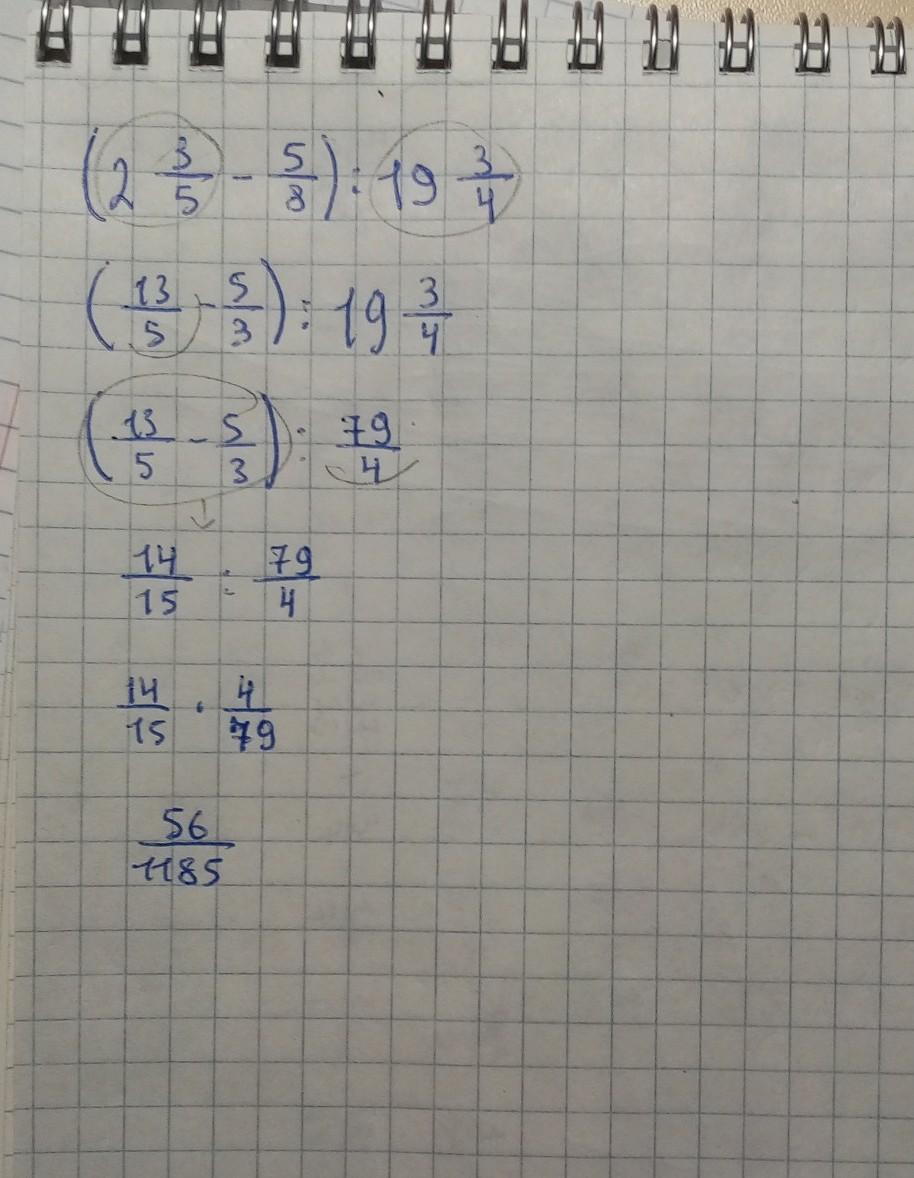 (2 3/5 - 5/8) : 19 3/4
(13/5 - 5/3) : 19 3/4
(13/5 - 5/3) : 79/4
14/15 : 79/4
14/15 · 4/79
56/1185